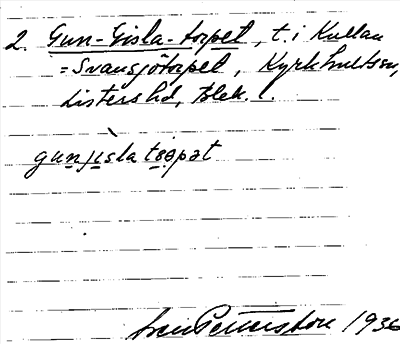 2. Gun-Gisla-torpet, t. i Kullan
= Svansjötorpet, Kyrkhultssn,
Listers hd, Blek. l.
gunjɩsla tɷrpət
Pettersson 1936